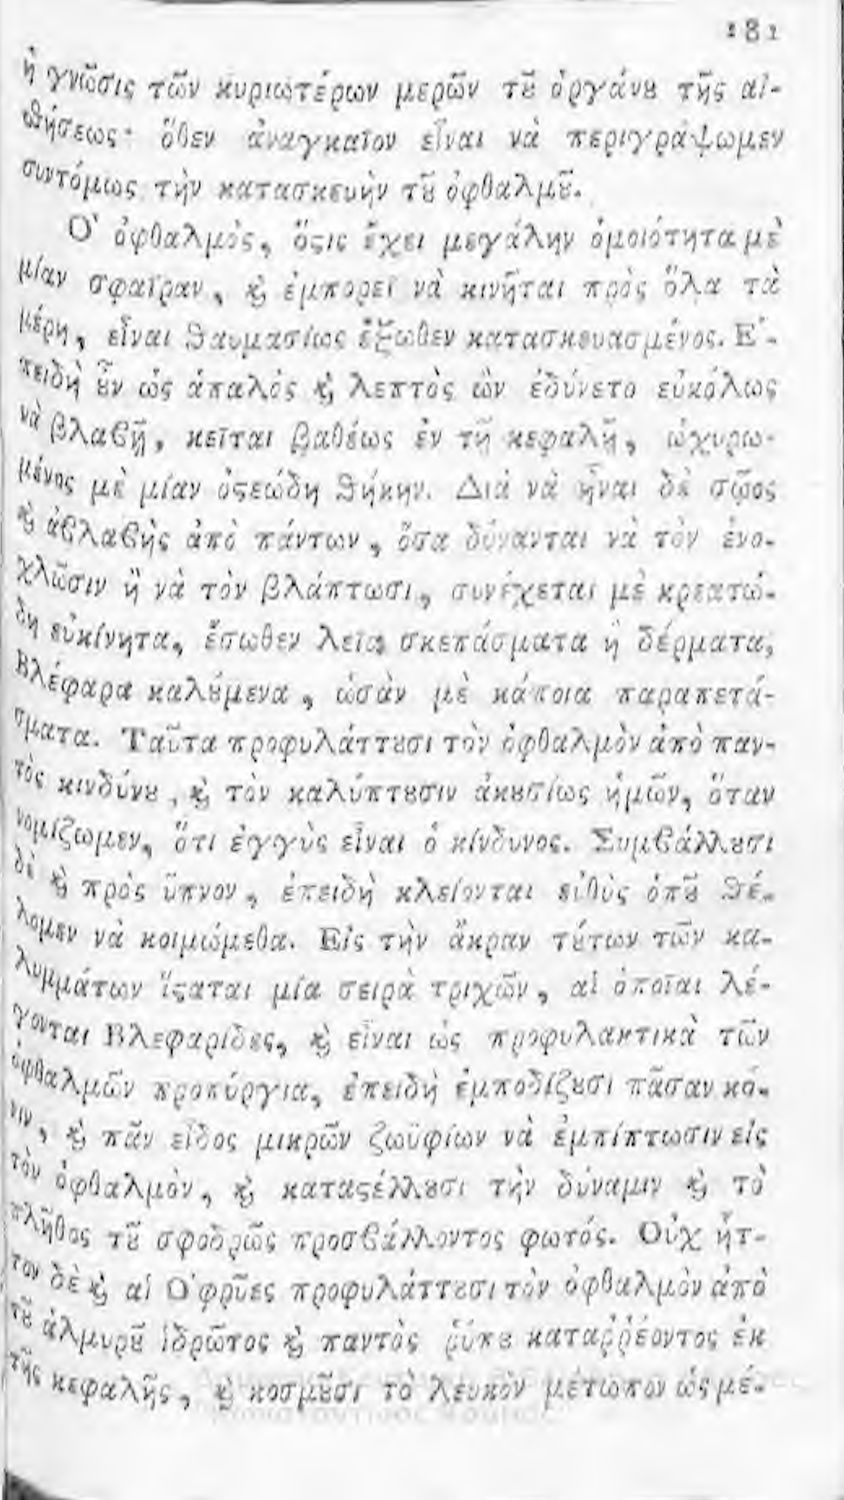 181
ἡ γνῶσις τῶν κυριωτέρων μερῶν τȣ͂ ὀργάνȣ τῆς αἰ-
σθήσεως· ὅθεν ἀναγκαῖον εἶναι νὰ περιγράψωμεν
συντόμως τὴν κατασκευὴν τȣ͂ ὀφθαλμȣ͂.
Ὁ ὀφθαλμὸς, ὅϛις ἔχει μεγάλην ὁμοιότητα μὲ
μίαν σφαῖραν, ϗ ἐμπορεῖ νὰ κινῆται πρὸς ὅλα τὰ
μέρη, εἶναι θαυμασίως ἔξωθεν κατασκευασμένος. Ἐ-
πειδὴ ȣ̓͂ν ὡς ἁπαλὸς ϗ λεπτὸς ὢν ἐδύνετο εὐκόλως
νὰ βλαβῇ, κεῖται βαθέως ἐν τῇ κεφαλῇ, ὠχυρω-
μένος μὲ μίαν ὀϛεώδη θήκην. Διὰ νὰ ἦναι δὲ σῷος
ϗ ἀβλαβὴς ἀπὸ πάντων, ὅσα δύνανται νὰ τὸν ἐνο-
χλῶσιν ἢ νὰ τὸν βλάπτωσι, συνέχεται μὲ κρεατώ-
δη εὐκίνητα, ἔσωθεν λεῖα σκεπάσματα ἢ δέρματα,
Βλέφαρα καλȣ́μενα, ὡσὰν μὲ κάποια παραπετά-
σματα. Ταῦτα προφυλάττȣσι τὸν ὀφθαλμὸν ἀπὸ παν-
τὸς κινδύνȣ, ϗ τὸν καλύπτȣσιν ἀκȣσίως ἡμῶν, ὅταν
νομίζωμεν, ὅτι ἐγγὺς εἶναι ὁ κίνδυνος. Συμβάλλȣσι
δὲ ϗ πρὸς ὕπνον, ἐπειδὴ κλείονται εὐθὺς ὁπȣ͂ θέ-
λομεν νὰ κοιμώμεθα. Εἰς τὴν ἄκραν τȣ́των τῶν κα-
λυμμάτων ἵϛαται μία σειρὰ τριχῶν, αἱ ὁποῖαι λέ-
γονται Βλεφαρίδες, ϗ εἶναι ὡς προφυλακτικὰ τῶν
ὀφθαλμῶν προπύργια, ἐπειδὴ ἐμποδίζȣσι πᾶσαν κό-
νιν, ϗ πᾶν εἶδος μικρῶν ζωϋφίων νὰ ἐμπίπτωσιν εἰς
τὸν ὀφθαλμὸν, ϗ καταϛέλλȣσι τὴν δύναμιν ϗ τὸ
πλῆθος τȣ͂ σφοδρῶς προσβάλλοντος φωτός. Οὐχ ἧτ-
τον δὲ ϗ αἱ Ὀφρῦες προφυλάττȣσι τὸν ὀφθαλμὸν ἀπὸ
τȣ͂ ἁλμυρȣ͂ ἱδρῶτος ϗ παντὸς ῥύπȣ καταῤῥέοντος ἐκ
τῆς κεφαλῆς, ϗ κοσμȣ͂σι τὸ λευκὸν μέτωπον ὡς μέ-